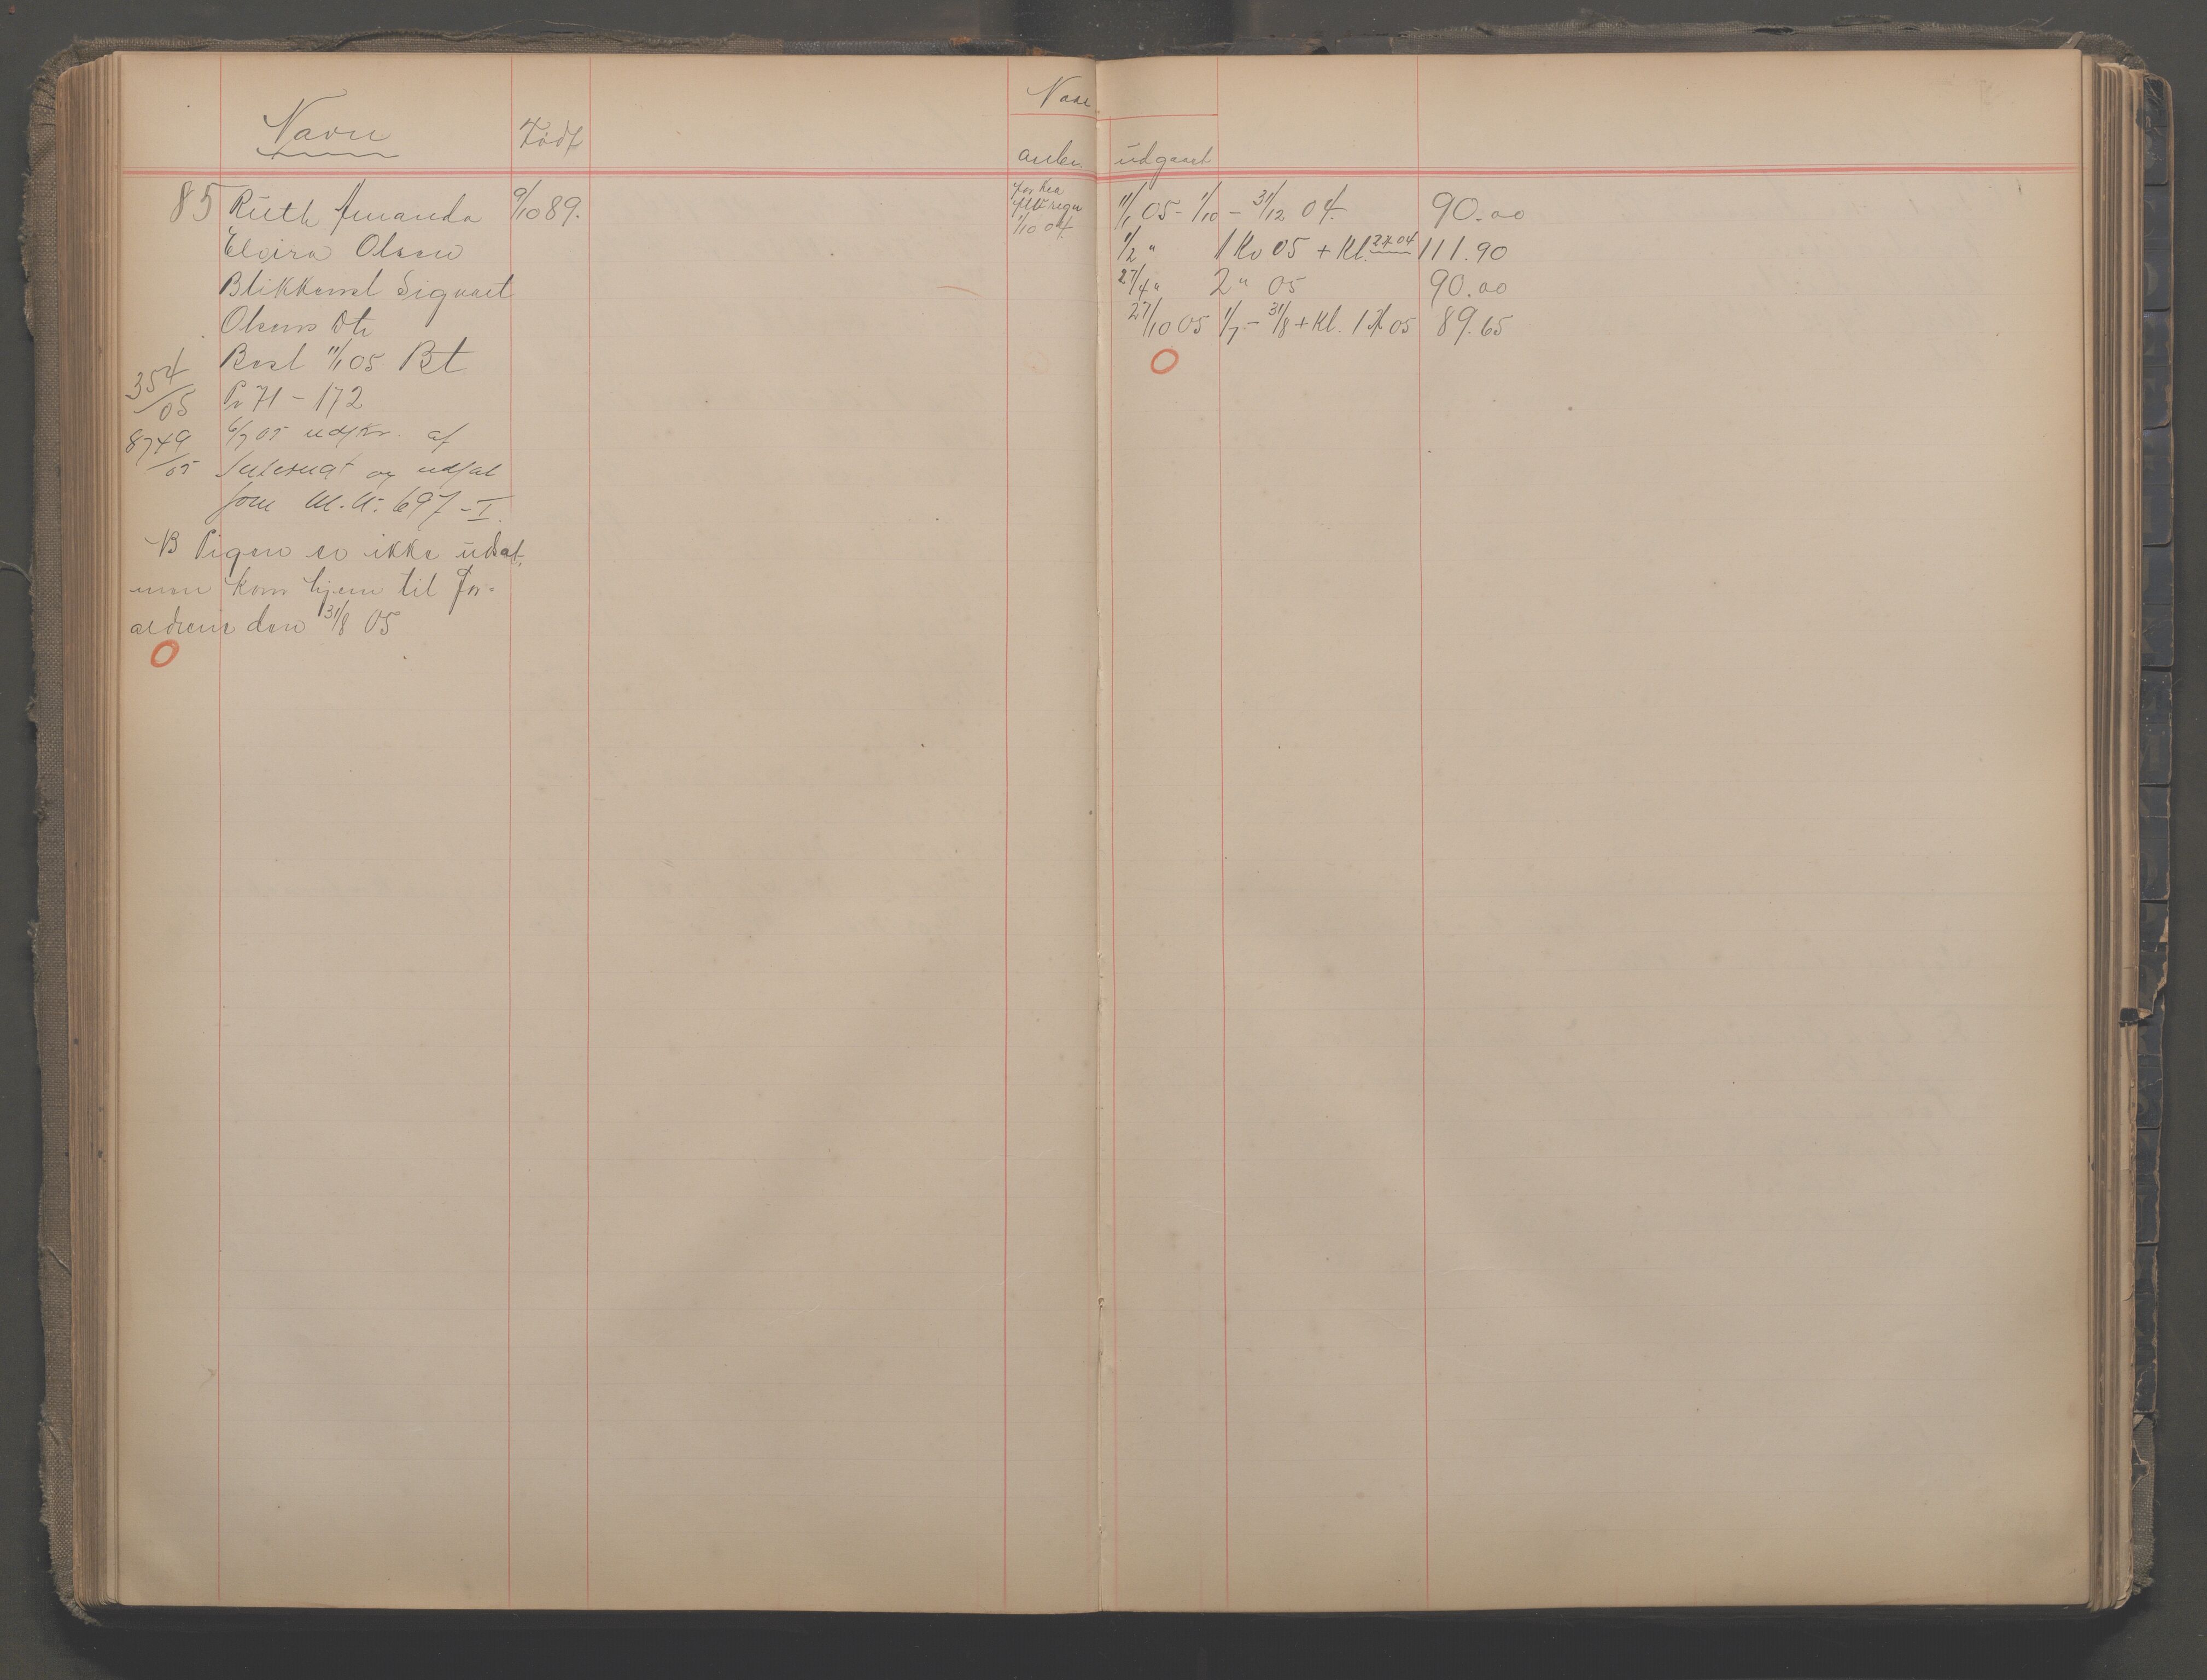 Navn
Født
Naar
anbr.
udgaaet
85 Ruth Amanda 9/10 89.
Elvira Olsen
Blikkensl Sigvart
Olsens Dtr
Besl 11/1 05 Bt
354/05 Pr 71 - 172
8749/05 6/7 05 udskr. af
og udsat
som M.A. 697 - I.
NB Pigen er ikke udsat,
men kom hjem til For-
ældrene den 31/8 05
1/10 04
11/1 05 - 1/10 - 31/12 04. 90.00
1/2 " 1 Kv 05 + Kl. 2H 04 111.90
27/4 " 2 " 05 90.00
27/10 05 1/7 - 31/8 + Kl. 1H 05 89.65